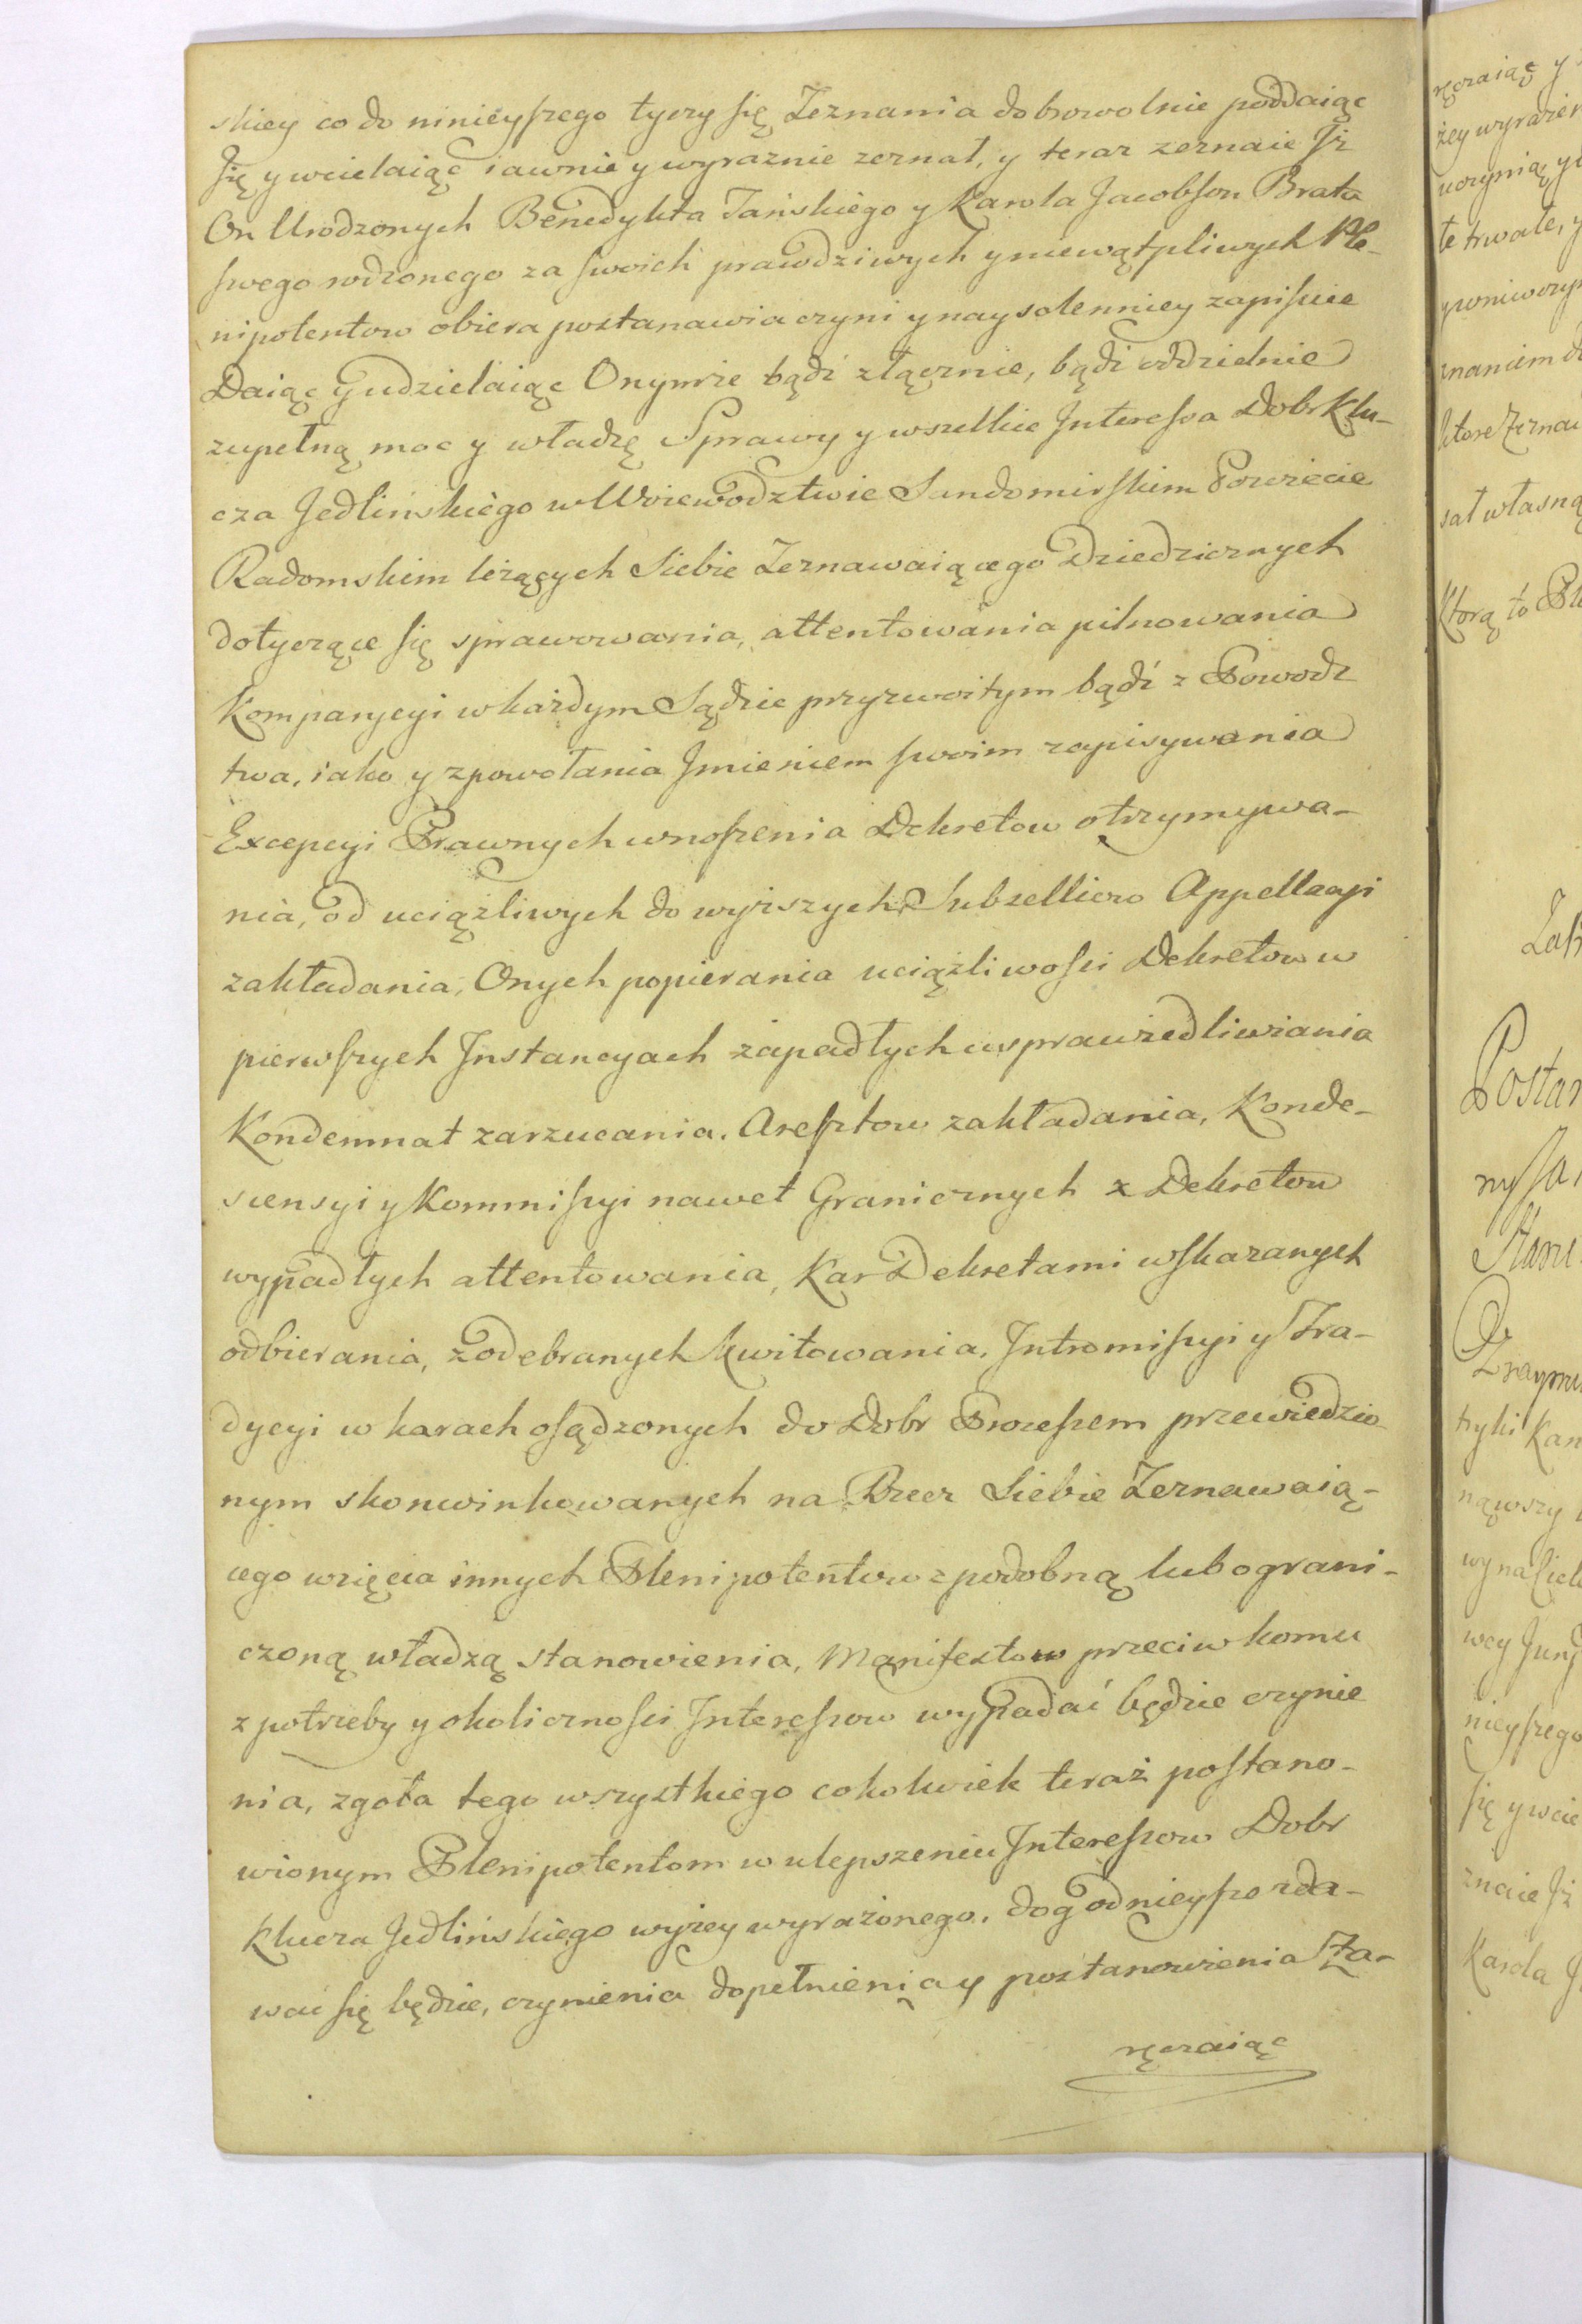 skiey co do ninieyszego tyczy się Zeznania dobrowolnie poddaiąc
Się y wcielaiąc iawnie y wyraznie zeznał, y teraz zeznaie Jż
On Urodzonych Benedykta Tańskiego y Karola Jacobson Brata
swego rodzonego za swoich prawdziwych y niewątpliwych Ple-
nipotentow obiera postanawia czyni y naysolenniey zapisuie
Daiąc y udzielaiąc Onymże bądź złącznie, bądź oddzielnie
zupełną moc y władzę Sprawy y wszelkie Interessa Dobr Klu-
cza Jedlińskiego w Woiewodztwie Sandomirskim Powiecie
Radomskim leżących Siebie Zeznawaiącego Dziedzicznych
dotyczące się sprawowania, attentowania pilnowania
Komparycyi w każdym Sądzie przyzwoitym bądź z Powodz
twa, iako y z powołania Jmieniem swoim zapisywania
Excepcyi Prawnych wnoszenia Dekretow otrzymywa-
nia, od uciążliwych do wyższych Subselliow Appellacyi
zakładania, Onych popierania uciążliwości Dekretow w
pierwszych Instancyach zapadłych usprawiedliwiania
Kondemnat zarzucania. Aresztow zakładania, Konde-
scensyi y Kommissyi nawet Granicznych z Dekretow
wypadłych attentowania, Kar Dekretami wskazanych
odbierania, z odebranych kwitowania, Intromissyi y Tra-
dycyi w karach osądzonych do Dobr Processem przewiedzio-
nym skonwinkowanych na Rzecz Siebie Zeznawaią-
cego wzięcia innych Plenipotentow z podobną lub ograni-
czoną władzą stanowienia, Manifestow przeciw komu
z potrzeby y okoliczności Interessow wypadać będzie czynie
nia, zgoła tego wszystkiego cokolwiek teraż postano-
wionym Plenipotentom w ulepszeniu Interessow Dobr
Klucza Jedlińskiego wyżey wyrażonego, dogodnieyszo zda-
wać się będzie, czynienia dopełnienia y postanowienia Za-
ręczaiąc
ręczaiąc y
żey wyrażen
uczynią y
te trwałe, y
znaniem d
ktore Zezna
sał własną
Ktorą to Ple
Postan
Karola J